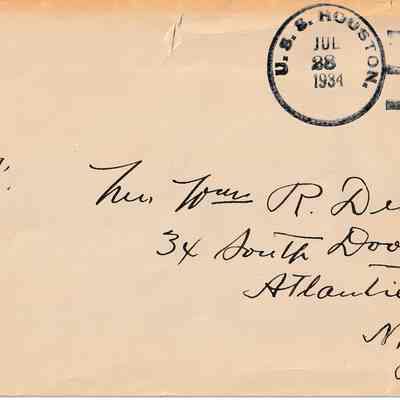 U. S. S. HOUSTON.
JUL
28
1934
Mrs. Wm R. De
34 South Dov
Atlantic
N.